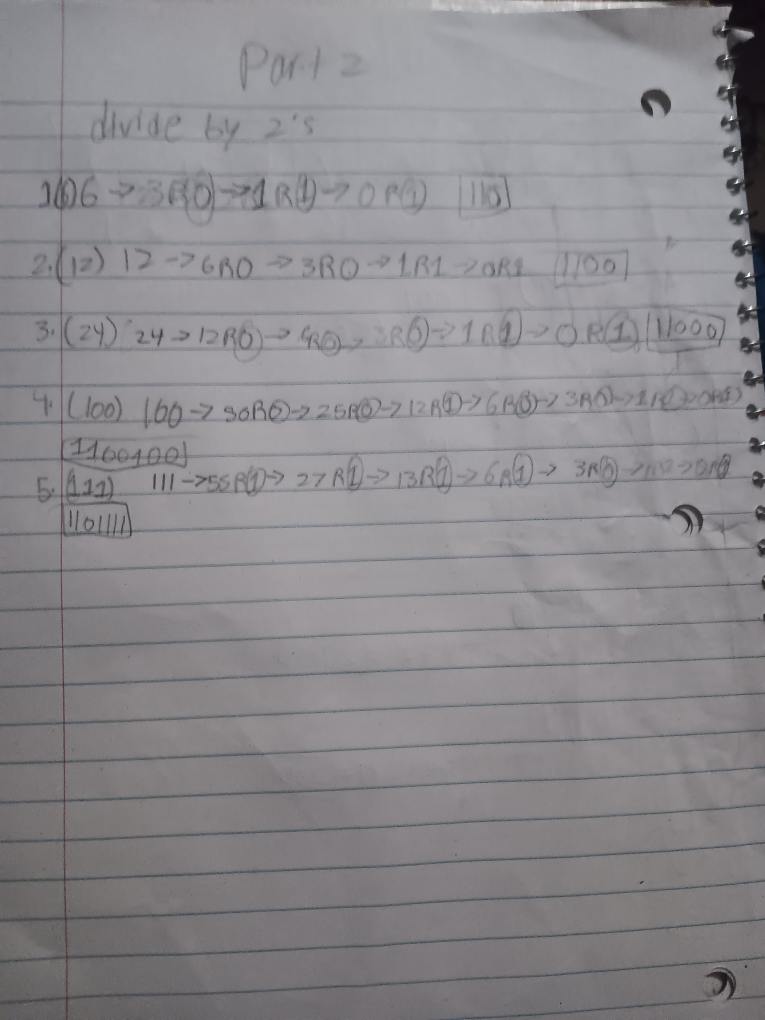 Part 2
divide by 2's
1.(6) 6 → 3R0 → 1R1 → 0R1 110
2.(12) 12 → 6R0 → 3R0 → 1R1 → 0R1 1100
3.(24) 24 → 12R0 → 6R0 → 3R0 → 1R1 → 0R1 11000
4.(100) 100 → 50R0 → 25R0 → 12R1 → 6R0 → 3R0 → 1R1 → 0R1
1100100
5.(111) 111 → 55R1 → 27R1 → 13R1 → 6R1 → 3R0 → →
1101111